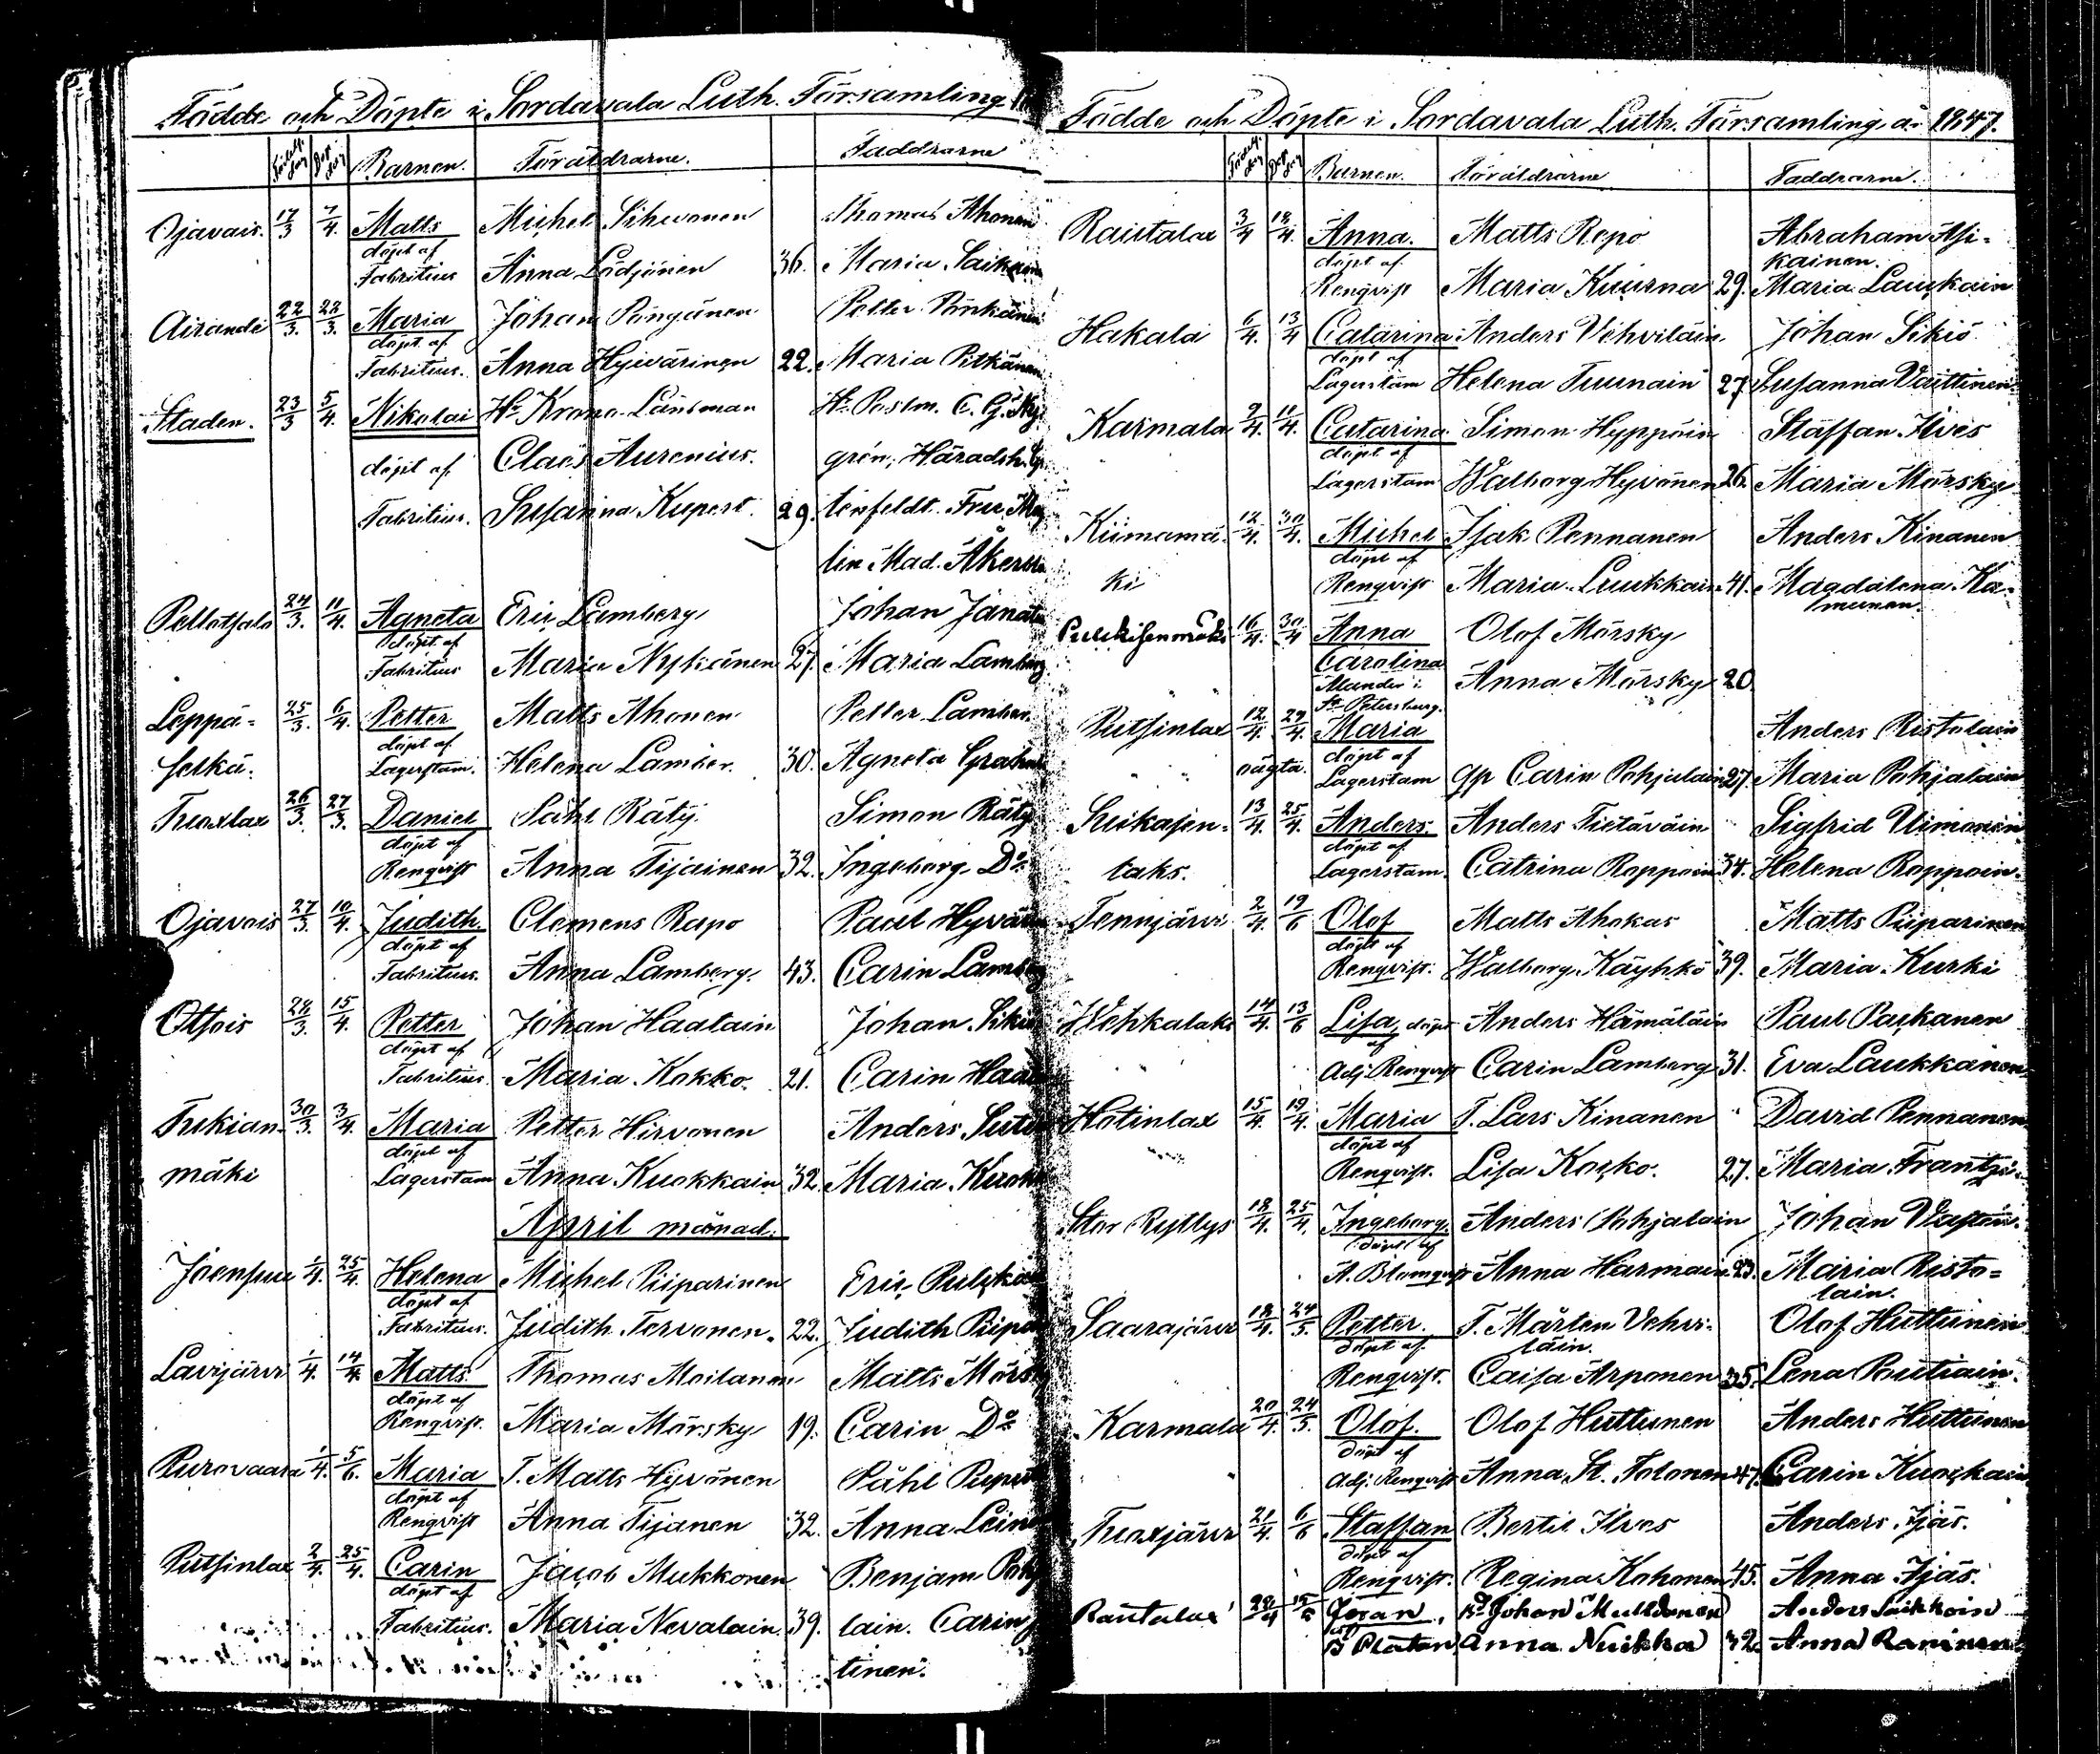 Födde och Döpte i Sordavala Luth. Församling
Födelse dag Dop dag Barnen. Föräldrarne. Faddrarne
Ojavois. 17/3 7/4. Matts Michel Sihvonen Thomas Ahonen
döpt af
Fabritius Anna Lödjönen 36. Maria Saikoin
Airande 22/3. 28/3. Maria Johan Pöngänen Petter Pönkänen
döpt af
Fabritius. Anna Hyivärinen 22. Maria Pitkänen
Staden. 23/3 5/4. Nikolai Hr Krono Länsman Hr Postm. C. G. Ny-
döpt af Claës Aurenius. grén, Häradsh.
Fabritius. Susanna Kupert. 29. tenfeldt. Fru
lin Mad. Åker
Pellotsalo 24/3. 11/4. Agneta Eric Lamberg Johan Janatu
döpt af
Fabritius Maria Nykänen 27. Maria Lamberg
Leppä- 25/3. 6/4. Petter Matts Ahonen Petter Lamber
döpt af
selkä. Lagerstam. Helena Lamber. 30. Agneta
Tuoxlax 26/3. 27/3. Daniel Påhl Räty. Simon Räty
döpt af
Renqvist Anna Tijainen 32. Ingeborg Do
Ojavois 27/3. 10/4. Judith. Clemens Rapo Paul Hyvä
döpt af
Fabritius. Anna Lamberg. 43. Carin Lamberg
Otsois 28/3. 15/4. Petter Johan Haatain Johan Sikiö
döpt af
Fabritius. Maria Kokko. 21. Carin Haat
Tukian- 30/3. 3/4. Maria Petter Hirvonen Anders
döpt af
mäki Lagerstam Anna Kuokkain 32. Maria Kuokk
April månad.
Joensuu 1/4. 25/4. Helena Michel Piiparinen Eric Pulkka
döpt af
Fabritius. Judith Tervonen. 22. Judith Piipa
Lavijärvi 1/4. 14/4. Matts Thomas Moilanen Matts Mörsk
döpt af
Renqvist. Maria Mörsky 19. Carin Do
Purovaara 1/4. 5/6. Maria T. Matts Hyvönen Påhl
döpt af
Renqvist Anna Tijanen 32. Anna Lein
Putsinlax 2/4. 25/4. Carin Jacob Mukkonen Benjam Pohj
döpt af
Fabritius. Maria Nevalain 39. lain. Carin
tinen.
Födde och Döpte i Sordavala Luth. Församling år 1847.
Födelse dag Dop dag Barnen. Föräldrarne Faddrarne.
Rautalax 3/4 18/4. Anna. Matts Repo Abraham Asi-
döpt af kainen.
Renqvist Maria Kuurna 29. Maria Laukain
Hakala 6/4. 13/4 Catarina Anders Vehviläin Johan Sikiö
döpt af
Lagerstam Helena Tuunain 27. Susanna Vaittinen
Karmala 9/4. 11/4. Catarina Simon Hyppöin Staffan Ilves
döpt af
Lagerstam Walborg Hyvönen 26. Maria Mörsky
Kiimamä- 12/4. 30/4. Michel Isak Pennanen Anders Kinanen
döpt af
ki Renqvist Maria Luukkain 41. Magdalena Ka-
munen.
Pulkisenmäki 16/4. 30/4 Anna Olof Mörsky
Carolina
Mander i Anna Mörsky 20
St Petersburg.
Putsinlax 12/4. 29/4. Maria Anders Ristolain
oägta. döpt af
Lagerstam Qp Carin Pohjulain 27. Maria Pohjalain
Suikasen- 13/4. 25/4. Anders Anders Tietäväin Sigfrid Uimonen
döpt af
laks. Lagerstam. Catrina Roppoin 34. Helena Roppoin.
Tennjärvi 2/4. 19/6 Olof Matts Ahokas Matts Piiparinen
döpt af
Renqvist. Walborg Käyhkö 39. Maria Kurki
Wehkalaks 14/4. 13/6 Lisa, döpt Anders Hämäläin Paul Paskanen
af
Adj. Renqvist Carin Lamberg 31. Eva Laukkanen
Hotinlax 15/4. 19/4. Maria T. Lars Kinanen David Pennanen
döpt af
Renqvist. Lisa Kosko. 27. Maria Frantsi-
Stor Ryttys 18/4. 25/4. Ingeborg. Anders Pohjalain Johan
döpt af
A. Blomqvist Anna Harmain 23. Maria Risto-
lain.
Saarajärvi 18/4. 24/5. Petter. T. Mårten Vehvi- Olof Huttunen
döpt af läin.
Renqvist. Caisa Arponen 35. Lena Poutiain.
Karmala 20/4. 24/5. Olof. Olof Huttunen Anders Huttunen
döpt af
Adj. Renqvist Anna St. Tolonen 47. Carin Kuockain
Tuoxjärvi 21/4. 6/6 Staffan Bertil Ilves Anders Ijäs.
döpt af
Renqvist. Regina Kohonen 45. Anna Ijäs.
Rautalax 22/4 Göran, Bd Johan Multdonen Anders Saikkoin
af
B Platan Anna Nuikka 32. Anna Raninen